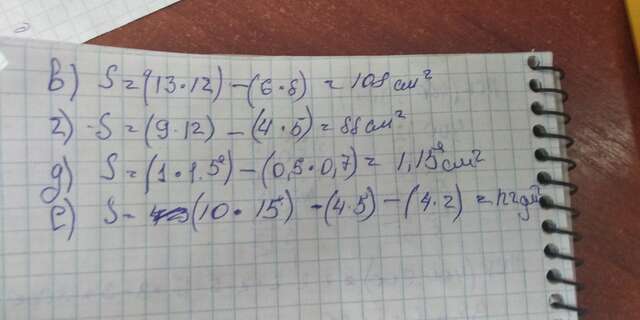 в) S = (13 · 12) - (6 · 8) = 108 см²
г) S = (9 · 12) - (4 · 5) = 88 см²
д) S = (1 · 1.5) - (0,5 · 0,7) = 1,15 см²
е) S = (10 · 15) - (4 · 5) - (4 · 2) =